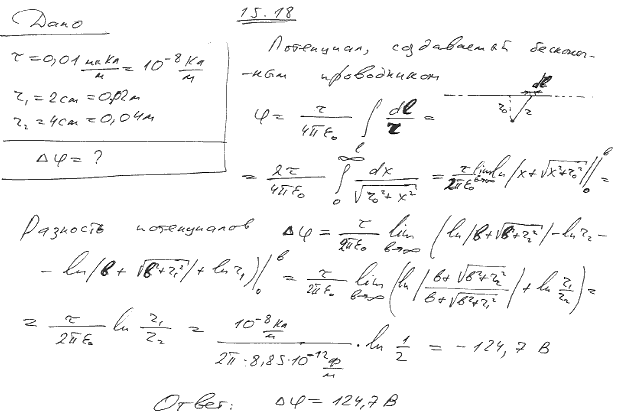 15.18
Дано
τ = 0,01 мкКл/м = 10^-8 Кл/м
r₁ = 2см = 0,02м
r₂ = 4см = 0,04м
Δφ = ?
Потенциал, создаваемый бесконеч-
-ным проводником
dl
r₀ r
φ = τ/(4πε₀) ∫_l dl/r =
= 2τ/(4πε₀) ∫_0^∞ dx/√(r₀²+x²) = τ/(2πε₀) lim_{b→∞} ln/x + √(x²+r₀²)/|_0^b =
Разность потенциалов Δφ = τ/(2πε₀) lim_{b→∞} (ln/b + √(b²+r₂²)/ - ln r₂ -
- ln/b + √(b²+r₁²)/ + ln r₁)|_0^b = τ/(2πε₀) lim_{b→∞} (ln/(b+√(b²+r₂²))/(b+√(b²+r₁²))/ + ln r₁/r₂) =
= τ/(2πε₀) ln r₁/r₂ = (10^-8 Кл/м)/(2π·8,85·10^-12 Ф/м) · ln 1/2 = -124,7 В
Ответ: Δφ = 124,7 В